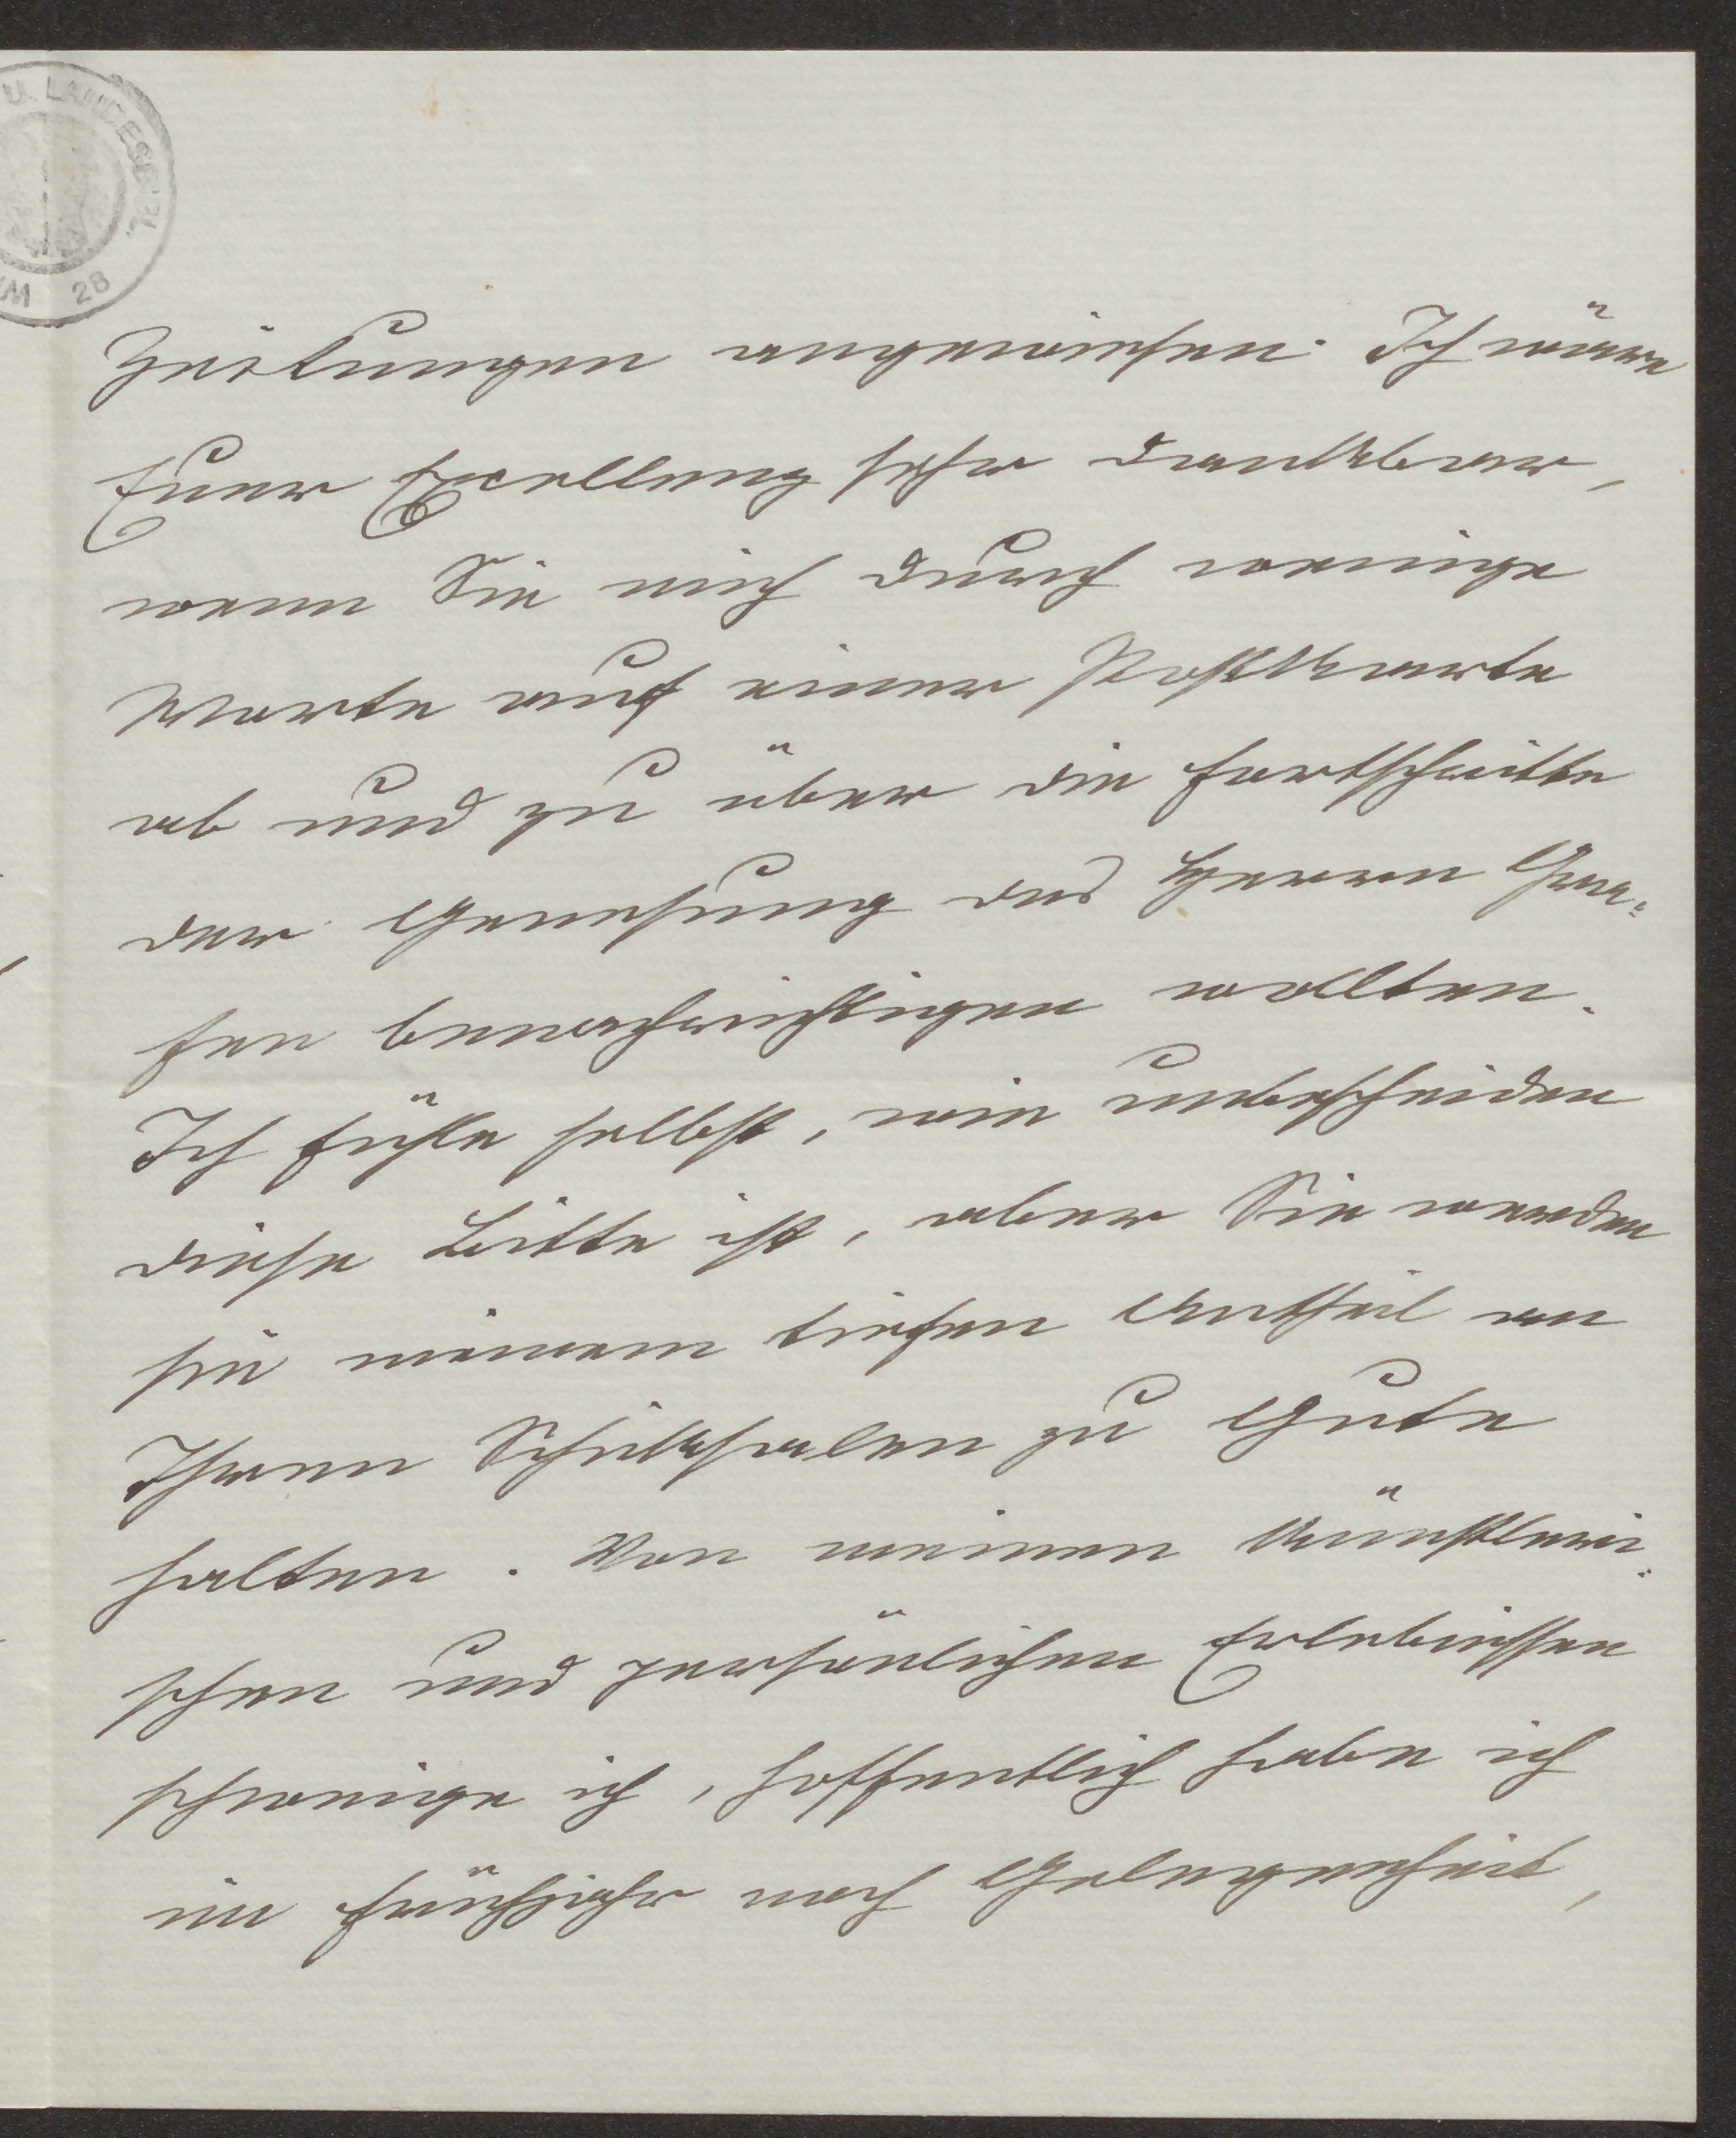 U. LANDESBIBL.
28
Zeitungen angewiesen. Ich wäre
Euer Excellenz sehr dankbar,
wenn Sie mich durch wenige
Worte auf einer Postkarte
ab und zu über die Fortschritte
der Genesung des Herrn Gra-
fen benachrichtigen wollten.
Ich fühle selbst, wie unbescheiden
diese Bitte ist, aber Sie werden
sie meinem tiefen Antheil an
Ihren Schicksalen zu Gute
halten. Von meinen künstleri-
schen und persönlichen Erlebnissen
schweige ich, hoffentlich habe ich
im Frühjahr noch Gelegenheit,